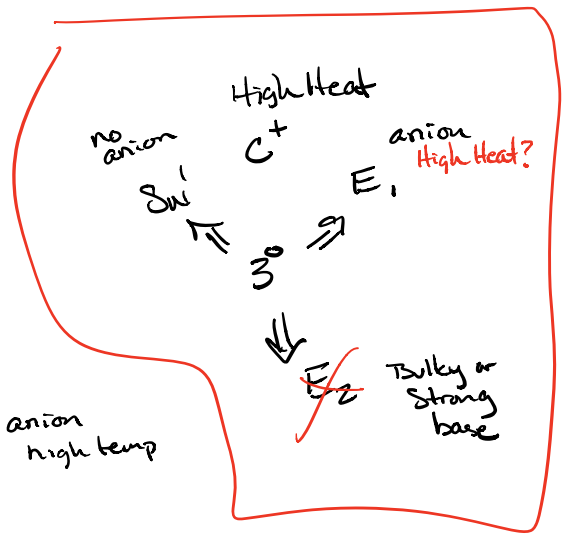 High Heat
no
anion
C+
anion
High Heat?
SN1
E1
3°
E2
Bulky or
Strong
base
anion
high temp